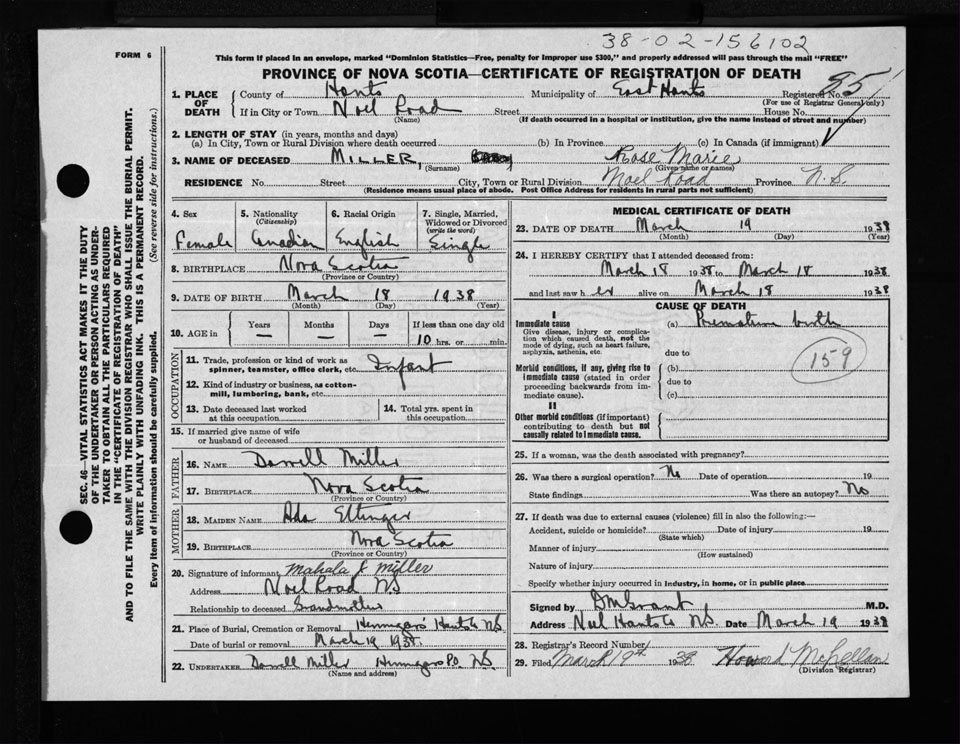 38-02-156102
FORM 6
This form if placed in an envelope, marked "Dominion Statistics—Free, penalty for improper use $300," and properly addressed will pass through the mail "FREE"
PROVINCE OF NOVA SCOTIA—CERTIFICATE OF REGISTRATION OF DEATH
1. PLACE OF DEATH County of Hants Municipality of East Hants Registered No. 95
(For use of Registrar General only)
If in City or Town Noel Road Street House No.
(Name) (If death occurred in a hospital or institution, give the name instead of street and number)
2. LENGTH OF STAY (in years, months and days)
(a) In City, Town or Rural Division where death occurred (b) In Province (c) In Canada (if immigrant)
3. NAME OF DECEASED MILLER, Rose Marie
(Surname) (Given name or names)
RESIDENCE No. Street City, Town or Rural Division Noel Road Province N.S.
(Residence means usual place of abode. Post Office Address for residents in rural parts not sufficient)
4. Sex 5. Nationality (Citizenship) 6. Racial Origin 7. Single, Married, Widowed or Divorced (write the word)
Female Canadian English Single
8. BIRTHPLACE Nova Scotia
(Province or Country)
9. DATE OF BIRTH March 18 1938
(Month) (Day) (Year)
10. AGE in Years Months Days If less than one day old
— — — 10 hrs. or min.
OCCUPATION
11. Trade, profession or kind of work as spinner, teamster, office clerk, etc. Infant
12. Kind of industry or business, as cotton-mill, lumbering, bank, etc.
13. Date deceased last worked at this occupation
14. Total yrs. spent in this occupation
15. If married give name of wife or husband of deceased
FATHER
16. NAME Darrell Miller
17. BIRTHPLACE Nova Scotia
(Province or Country)
MOTHER
18. MAIDEN NAME Ada Ettinger
19. BIRTHPLACE Nova Scotia
(Province or Country)
20. Signature of informant Mahala J Miller
Address Noel Road NS
Relationship to deceased Grandmother
21. Place of Burial, Cremation or Removal Hennigars Hants Co NS.
Date of burial or removal March 19 1938
22. UNDERTAKER Darrell Miller Hennigars P.O. NS.
(Name and address)
MEDICAL CERTIFICATE OF DEATH
23. DATE OF DEATH March 19 1938
(Month) (Day) (Year)
24. I HEREBY CERTIFY that I attended deceased from:
March 18 1938 to March 18 1938
and last saw her alive on March 18 1938
CAUSE OF DEATH
I
Immediate cause (a) Premature birth
Give disease, injury or complication which caused death, not the mode of dying, such as heart failure, asphyxia, asthenia, etc.
159
due to
Morbid conditions, if any, giving rise to immediate cause (stated in order proceeding backwards from immediate cause). (b)
due to
(c)
II
Other morbid conditions (if important) contributing to death but not causally related to immediate cause.
25. If a woman, was the death associated with pregnancy?
26. Was there a surgical operation? No Date of operation 19
State findings Was there an autopsy? No
27. If death was due to external causes (violence) fill in also the following:—
Accident, suicide or homicide? Date of injury 19
(State which)
Manner of injury
(How sustained)
Nature of injury
Specify whether injury occurred in industry, in home, or in public place
Signed by DMGrant M.D.
Address Noel Hants Co NS. Date March 19 1938
28. Registrar's Record Number
29. Filed March 19th 1938 Howard McLellan
(Division Registrar)
SEC. 46—VITAL STATISTICS ACT MAKES IT THE DUTY
OF THE UNDERTAKER OR PERSON ACTING AS UNDER-
TAKER TO OBTAIN ALL THE PARTICULARS REQUIRED
IN THE "CERTIFICATE OF REGISTRATION OF DEATH"
AND TO FILE THE SAME WITH THE DIVISION REGISTRAR WHO SHALL ISSUE THE BURIAL PERMIT.
WRITE PLAINLY WITH UNFADING INK. THIS IS A PERMANENT RECORD.
Every item of information should be carefully supplied. (See reverse side for instructions.)